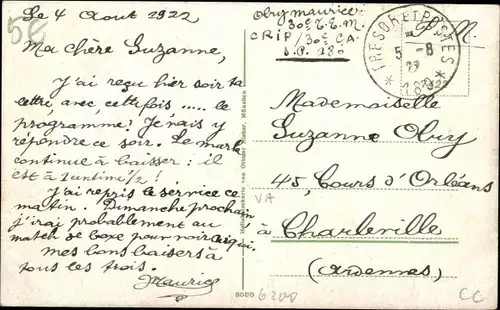 5€
Le 4 Août 1922
Ma chère Suzanne,
J'ai reçu hier soir ta
lettre, avec, cette fois ..... le
programme! J'e vais y
répondre ce soir. Le mark
continue à baisser: il
est à 1 centime 1/2!
J'ai repris le service ce
matin. Dimanche prochain
j'irai probablement au
match de boxe pour noircigui.
mes bons baisers à
tous les trois.
Maurice
Obry Maurice
30e T.E.M.
CRIP/30e C.A.
S.P. 180
F. M.
TRESOR ET POSTES
5 - 8
22
* 180 *
Mademoiselle
Suzanne Obry
45, Cours d'Orléans
à Charleville
(Ardennes)
VA
6000
6200
CC